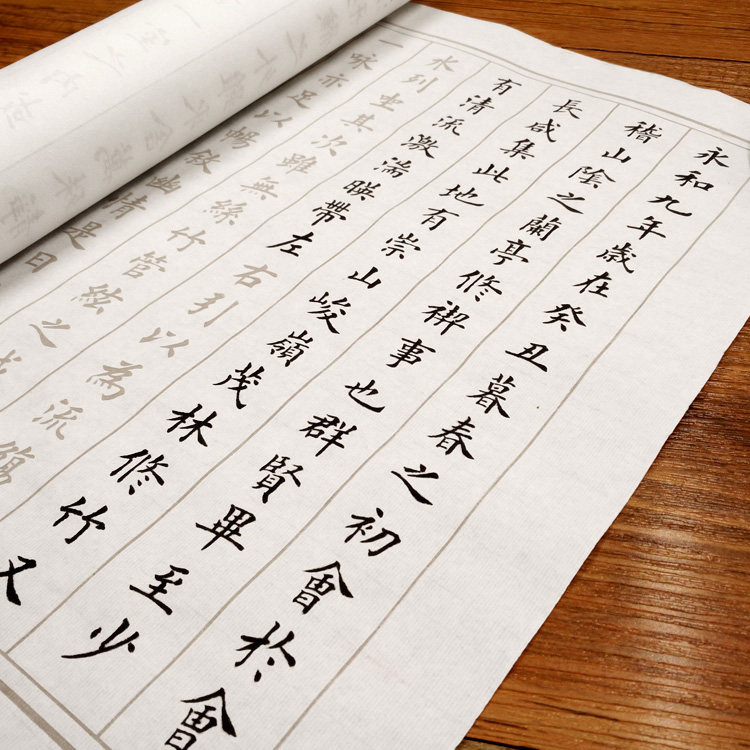 永和九年歲在癸丑暮春之初會於會
稽山陰之蘭亭修禊事也群賢畢至少
長咸集此地有崇山峻嶺茂林修竹又
有清流激湍暎帶左右引以為流觴
水列坐其次雖無絲竹管絃之盛
一詠亦足以暢敘幽情是日